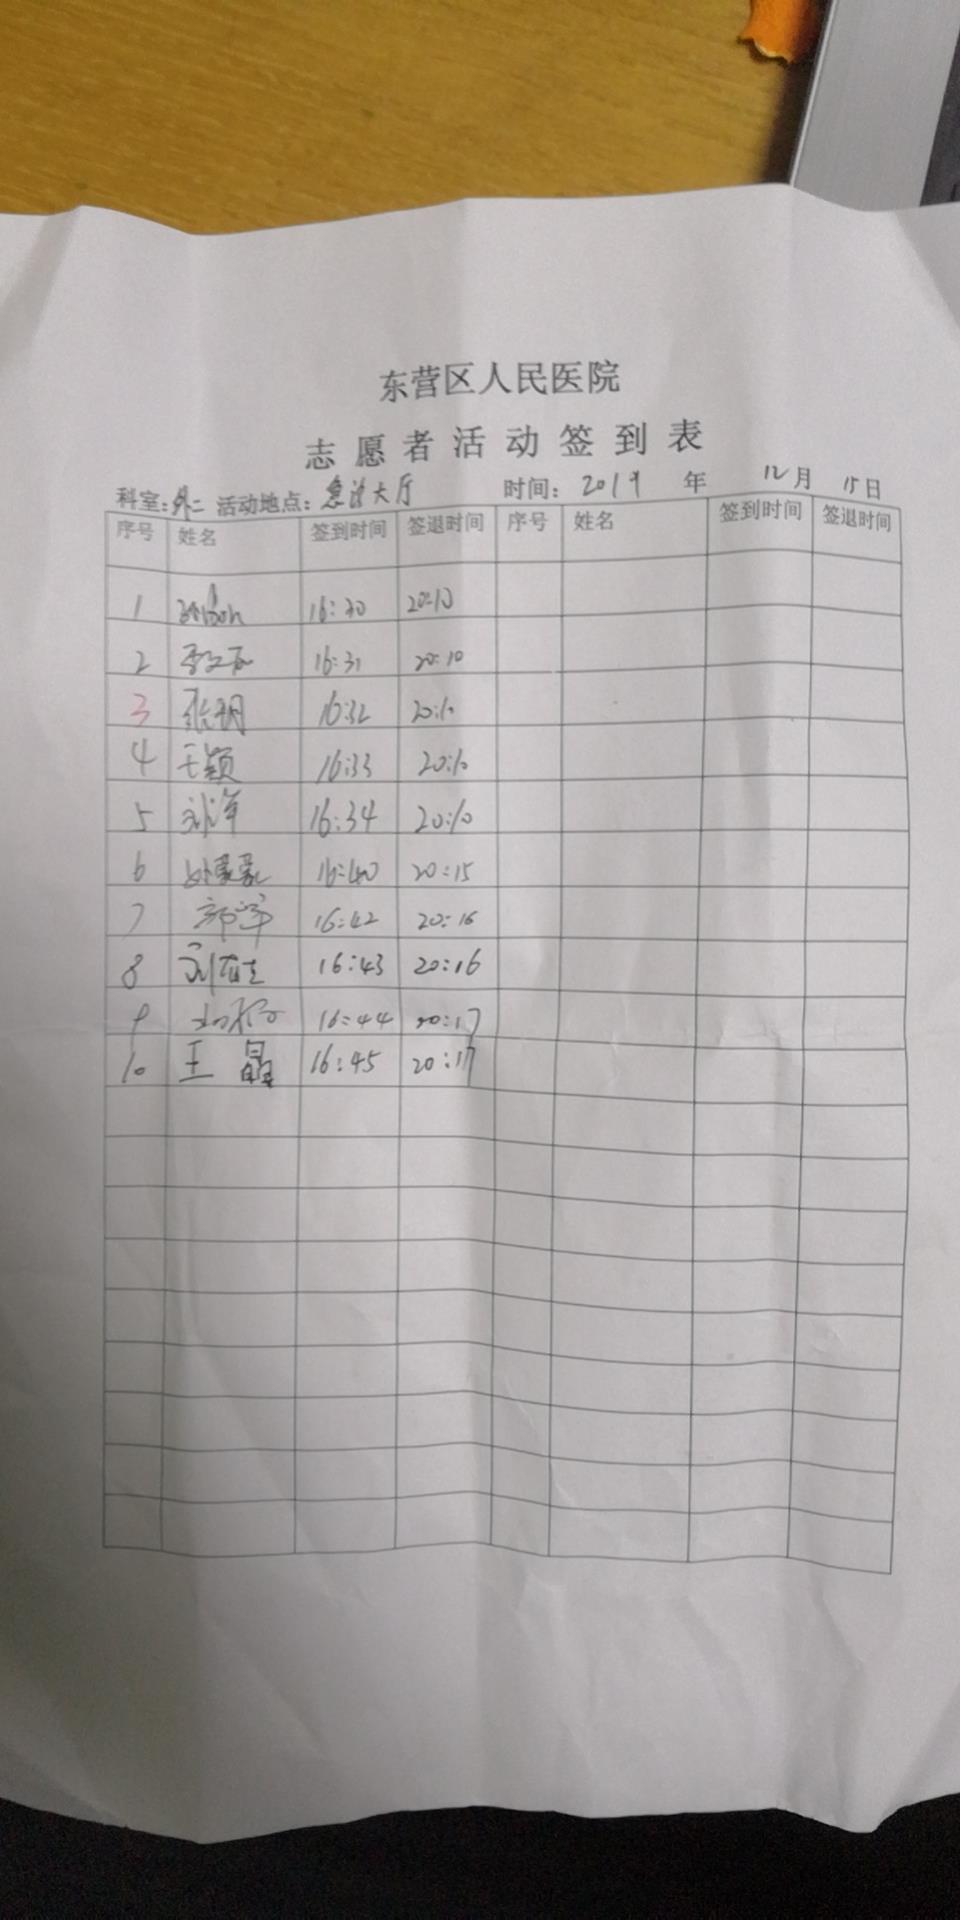 东营区人民医院
志愿者活动签到表
科室：外二 活动地点：急诊大厅 时间：2019 年 12月 15日
序号 姓名 签到时间 签退时间 序号 姓名 签到时间 签退时间
1 16:30 20:10
2 16:31 20:10
3 张玥 16:32 20:10
4 王颖 16:33 20:10
5 刘洋 16:34 20:10
6 16:40 20:15
7 郭军 16:42 20:16
8 16:43 20:16
9 16:44 20:17
10 王晶 16:45 20:17